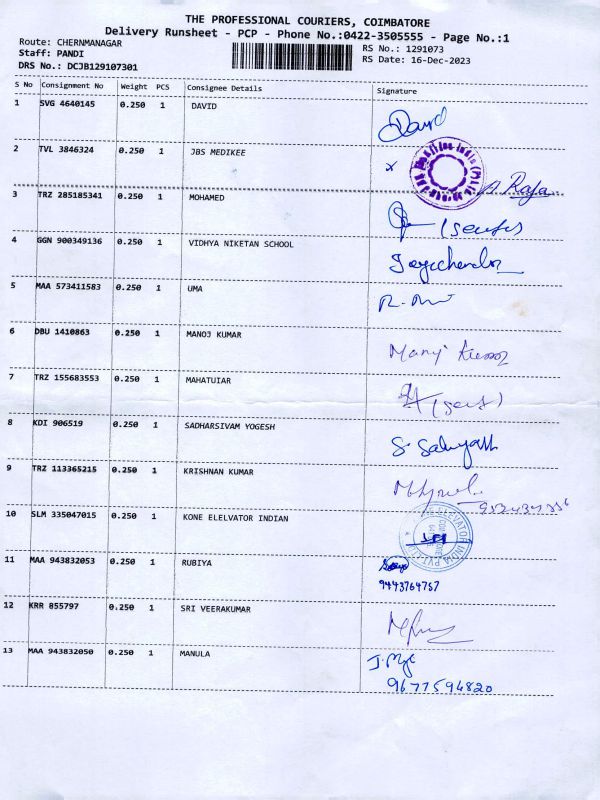 THE PROFESSIONAL COURIERS, COIMBATORE
Delivery Runsheet - PCP - Phone No.:0422-3505555 - Page No.:1
Route: CHERNMANAGAR
Staff: PANDI
DRS No.: DCJB129107301
RS No.: 1291073
RS Date: 16-Dec-2023
S No Consignment No Weight PCS Consignee Details Signature
1 SVG 4640145 0.250 1 DAVID David
2 TVL 3846324 0.250 1 JBS MEDIKEE x Raja
3 TRZ 285185341 0.250 1 MOHAMED
4 GGN 900349136 0.250 1 VIDHYA NIKETAN SCHOOL
5 MAA 573411583 0.250 1 UMA
6 DBU 1410863 0.250 1 MANOJ KUMAR
7 TRZ 155683553 0.250 1 MAHATUIAR
8 KDI 906519 0.250 1 SADHARSIVAM YOGESH
9 TRZ 113365215 0.250 1 KRISHNAN KUMAR
10 SLM 335047015 0.250 1 KONE ELELVATOR INDIAN
11 MAA 943832053 0.250 1 RUBIYA
9443764757
12 KRR 855797 0.250 1 SRI VEERAKUMAR
13 MAA 943832050 0.250 1 MANULA
9677594820